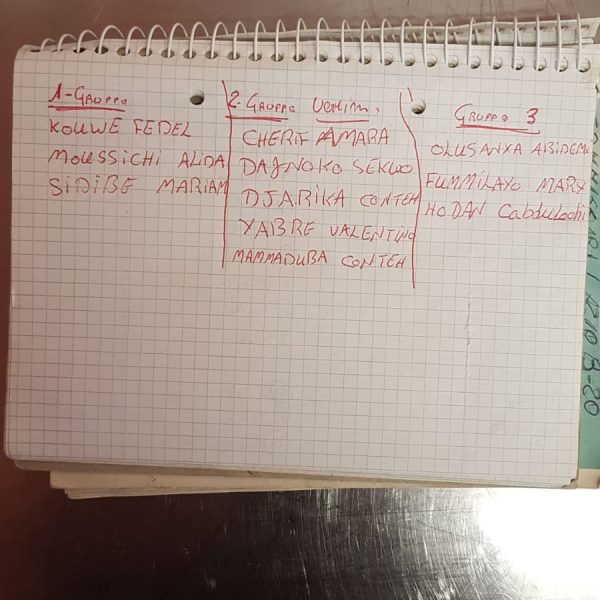 1-Gruppo
KOUWE FEDEL
MOUSSICHI ALIDA
SIDIBE MARIAM
2. Gruppo
CHERIF
DAJNOKO SEKUO
DJARIKA CONTEH
YABRE VALENTINO
MAMMADUBA CONTEH
Gruppo 3
OLUSANXA ABIDEMI
FUMMILAYO MARY
HODAN Cabdulaahi